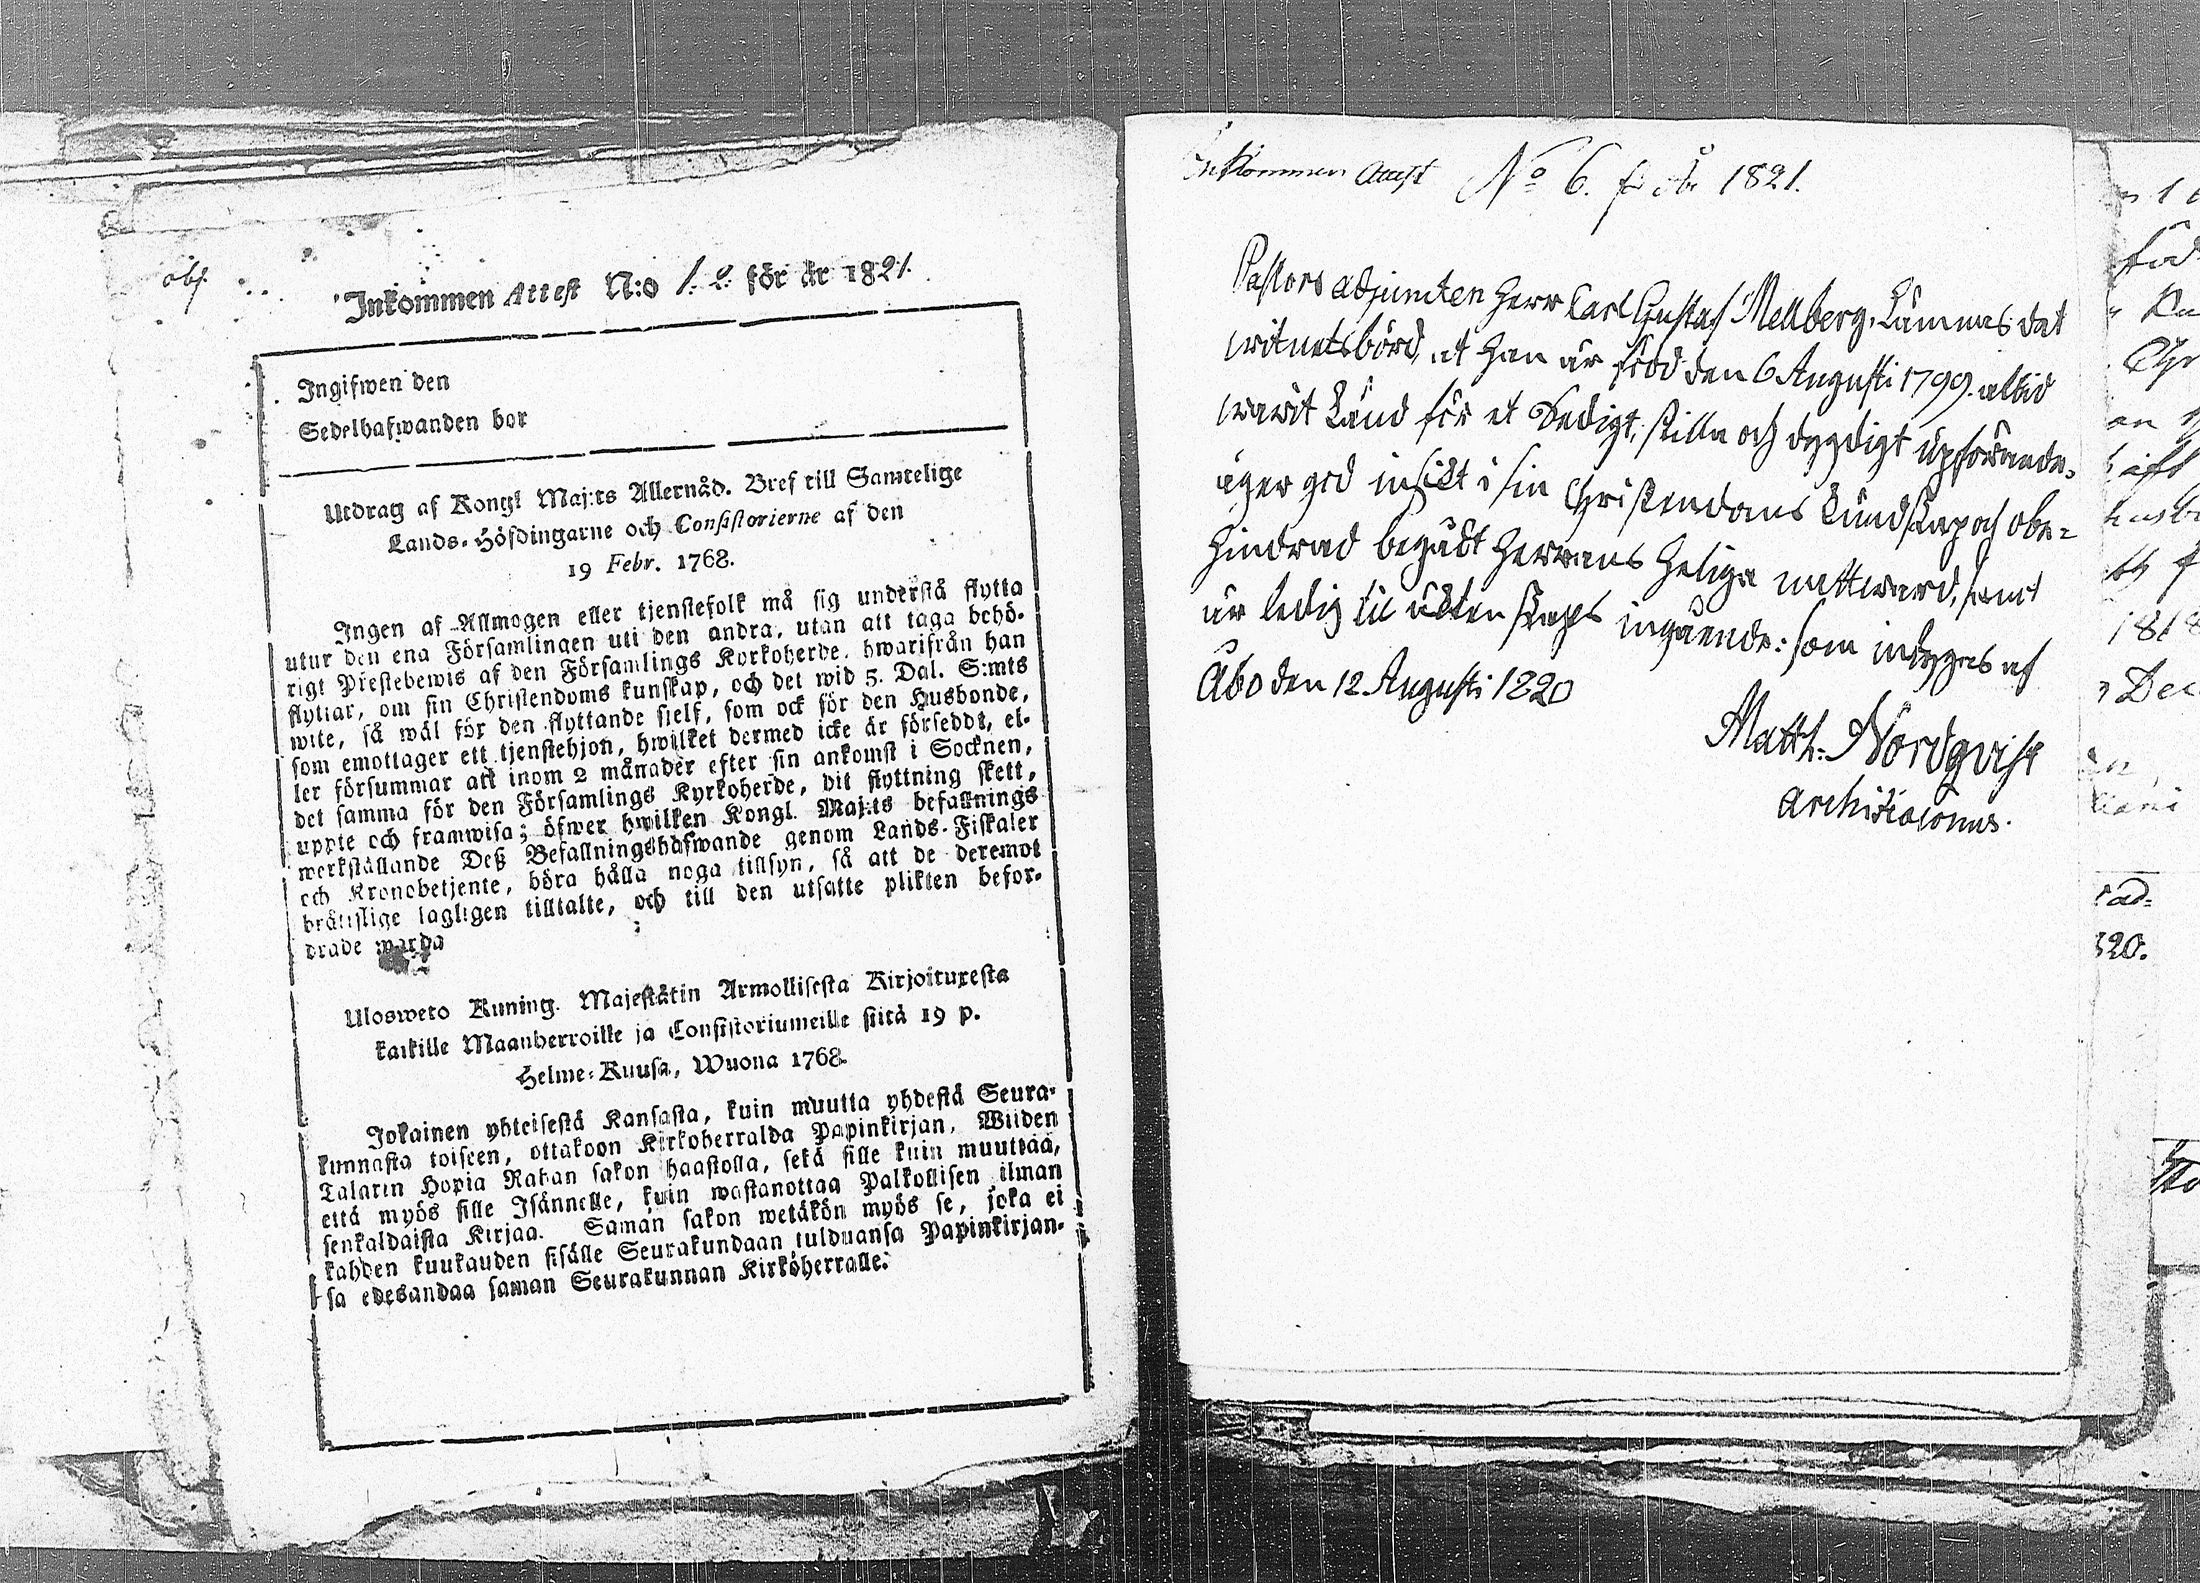 obs.
Inkommen Attest N:o 1. för år 1821.
Ingifwen den
Sedelhafwanden bor
Utdrag af Kongl Maj:ts Allernåd. Bref till Samtelige
Lands-Höfdingarne och Consistorierne af den
19 Febr. 1768.
Ingen af Allmogen eller tjenstefolk må sig understå flytta
utur den ena Församlingen uti den andra, utan att taga behö-
rigt Prestebewis af den Församlings Kyrkoherde, hwarifrån han
flyttar, om sin Christendoms kunskap, och det wid 5. Dal. S:mts
wite, så wäl för den flyttande sjelf, som ock för den Husbonde,
som emottager ett tjenstehjon, hwilket dermed icke är försedt, el-
ler försummar att inom 2 månader efter sin ankomst i Socknen,
det samma för den Församlings Kyrkoherde, dit flyttning skett,
uppte och framwisa; öfwer hwilken Kongl. Maj:ts befallnings
werkställande Deß Befallningshafwande genom Lands-Fiskaler
och Kronobetjente, böra hålla noga tillsyn, så att de deremot
bråttslige lagligen tilltalte, och till den utsatte plikten befor-
drade warda
Ulosweto Kuning. Majestätin Armollisesta Kirjoituxesta
kaikille Maanherroille ja Consistoriumeille siitä 19 p.
Helme-Kuusa, Wuona 1768.
Jokainen yhteisestä Kansasta, kuin muutta yhdestä Seura-
kunnasta toiseen, ottakoon Kirkoherralda Papinkirjan, Wiiden
Talarin Hopia Rahan sakon haastolla, sekä sille kuin muuttaa,
että myös sille Isännelle, kuin wastanottaa Palkollisen ilman
senkaldaista Kirjaa. Saman sakon wetäkön myös se, joka ei
kahden kuukauden sisälle Seurakundaan tulduansa Papinkirjan-
sa edesandaa saman Seurakunnan Kirkoherralle.
Inkommen Attest No 6. för år 1821.
Pastors adjuncten Herr Carl Gustaf Mellberg, Lämnas det
witnetsbörd, at han är född den 6 Augusti 1799. altid
warit känd för et sedigt, stilla och dygdigt upförande,
äger god insikt i sin Christendoms kundskap och obe-
hindrad begådt Herrans Heliga nattward, samt
är ledig til äktenskaps ingående: som intygas af
Åbo den 12 Augusti 1820
Matth. Nordqvist
Archidiaconus.
1818
Dec
ad=
820.